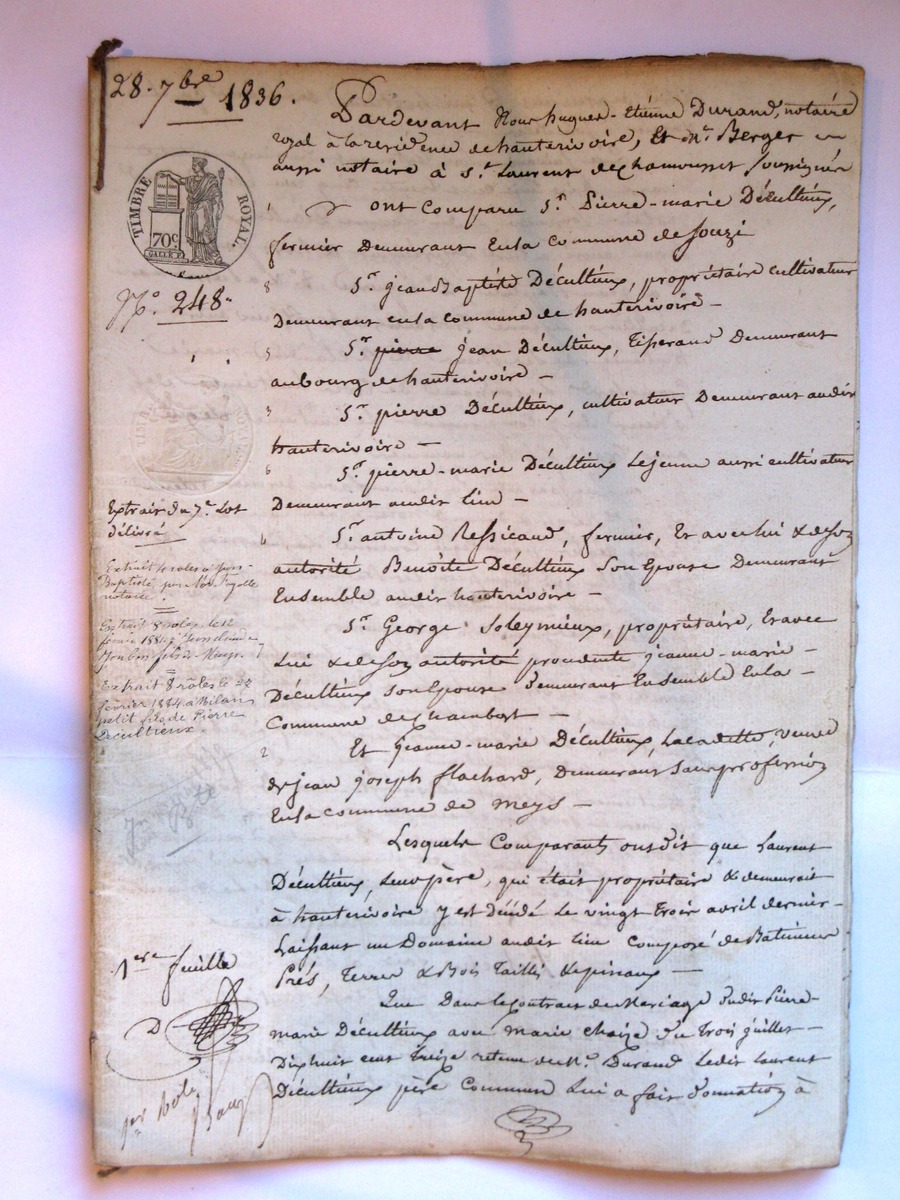 28. 7bre 1836.
Pardevant Nous hugues-Etiénne Durand, notaire
royal à la résidence de hauterivoire, Et Me. Berger
aussi notaire à St. Laurent de chamousset soussignés
TIMBRE ROYAL.
70c
No. 248.
1 ont comparu Sr. Pierre-marie Décultiéux,
fermier Demeurant En la Commune de Souzi
8 Sr. jean Baptiste Décultiéux, propriétaire cultivateur
Demeurant en la commune de hauterivoire —
5 Sr. pierre jean Décultiéux, tisserand Demeurant
au bourg de hauterivoire —
3 Sr. pierre Décultiéux, cultivateur Demeurant audit
hauterivoire —
6 Sr. pierre-marie Décultiéux Lejeune aussi cultivateur
Demeurant audit lieu —
Extrait du 7e. Lot
délivré
Sr. antoine Ressicaud, fermier, Et avec lui & de son
autorité Benoîte Décultiéux son Epouse Demeurant
Ensemble audit hauterivoire —
Extrait 4 roles à jean-
Baptiste, par Me.
notaire.
Extrait 8 roles le 12
février 1884 à
Sr. George Soleymieux, propriétaire, Et avec
Lui & de son autorité procédente jeanne-marie-
Décultiéux son Epouse demeurant Ensemble En la
Commune de Chambost —
Extrait 8 rôles le 27
février 1884 à Milan
petit fils de Pierre
Décultieux.
2 Et jeanne-marie Décultiéux, La cadette, veuve
de jean joseph flachard, demeurant sans profession
En la commune de meys —
Lesquels Comparants ont dit que Laurent
Décultiéux, Leur père, qui était propriétaire & demeurait
à hauterivoire y est Décédé Le vingt trois avril dernier
Laissant un Domaine audit lieu Composé de Batiments
Prés, terres & Bois Taillis & pinaux —
1ere feuille
Que Dans le Contrat de Mariage dudit Pierre-
marie Décultiéux avec marie chaize du trois juillet-
Dix huit cent treize retenu de Me. Durand Ledit Laurent
Décultiéux père Commun Lui a fait donnation à
D